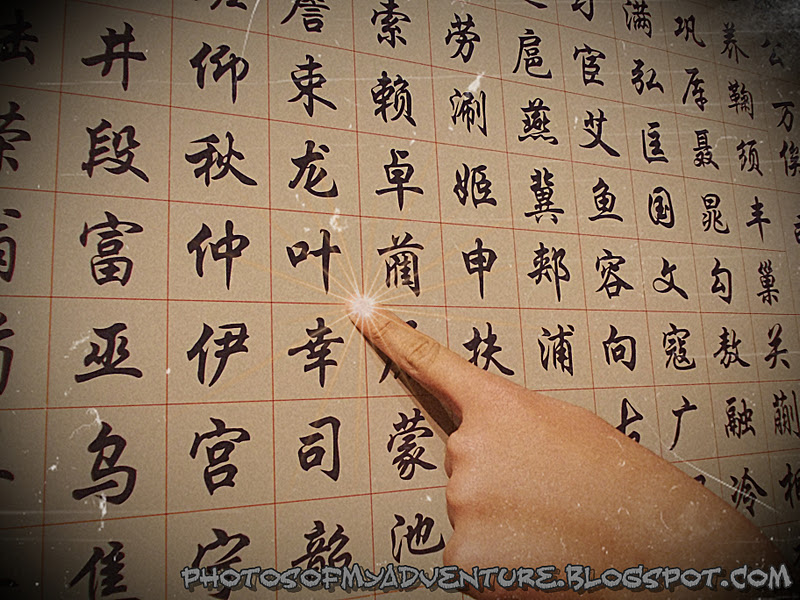 井段富巫乌
仰秋仲伊宫宁
詹束龙叶幸司韶
索赖卓蔺蒙池
劳涮姬申扶
扈燕冀郏浦
宦艾鱼容向
满弘匡国文寇广
巩厍聂晁勾敖融冷
养鞠须丰巢关蒯相
公万俟
PHOTOSOFMYADVENTURE.BLOGSPOT.COM